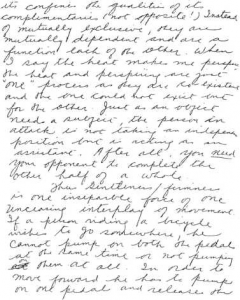 its confines the qualities of its
complimentaries (not opposite!) Instead
of mutually exclusive, they are
mutually dependent and are a
function each of the other. When
I say the heat makes me perspire,
the heat and perspiring are just
one process as they are co-existent
and the one could not exist but
for the other. Just as an object
need a subject, the person in
attack is not taking an independent
position but is acting as an
assistant. After all, you need
your opponent to complete the
other half of a whole.
This Gentleness/firmness
is one inseparable force of one
unceasing interplay of movement.
If a person riding a bicycle
wishes to go somewhere, he
cannot pump on both the pedals
at the same time or not pumping
them at all. In order to
move forward he has to pump
on one pedal and release the